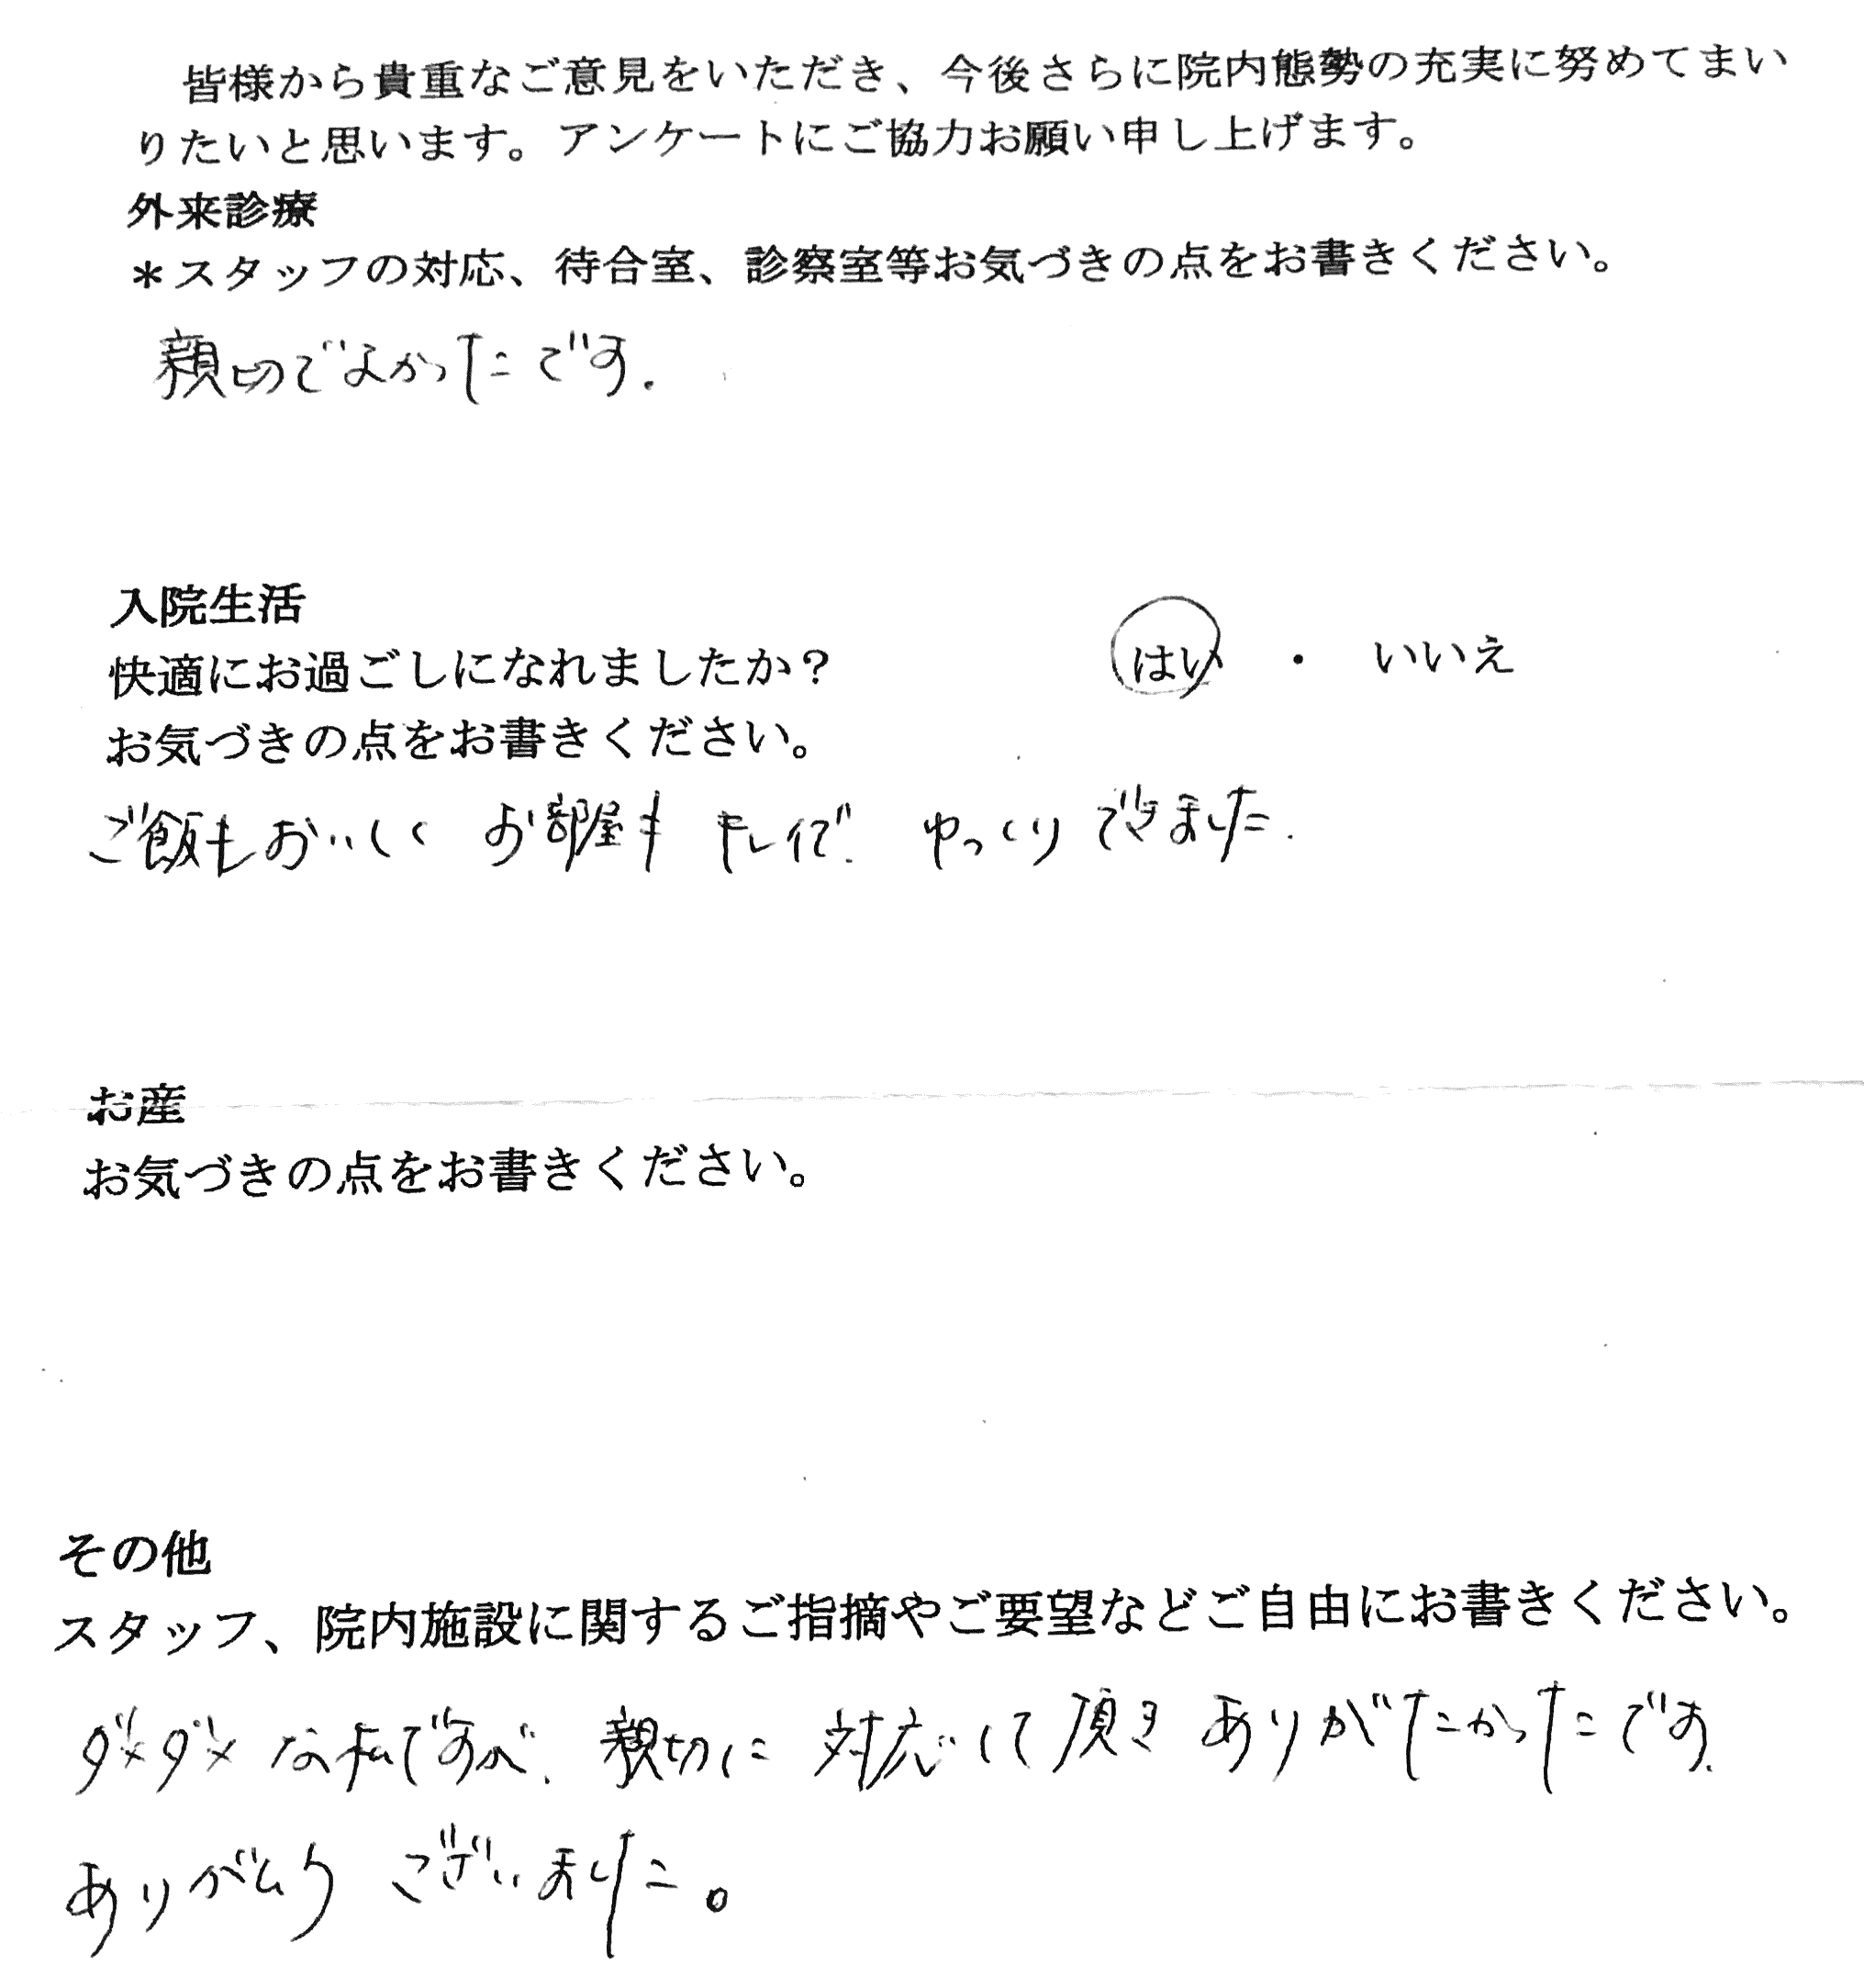 皆様から貴重なご意見をいただき、今後さらに院内態勢の充実に努めてまい
りたいと思います。アンケートにご協力お願い申し上げます。
外来診療
＊スタッフの対応、待合室、診察室等お気づきの点をお書きください。
親切でよかったです.
入院生活
快適にお過ごしになれましたか？ はい ・ いいえ
お気づきの点をお書きください。
ご飯もおいしく お部屋も キレイで. ゆっくり できました.
お産
お気づきの点をお書きください。
その他
スタッフ、院内施設に関するご指摘やご要望などご自由にお書きください。
ダメダメな私ですが、親切に 対応して頂き ありがたかったです.
ありがとう ございました。